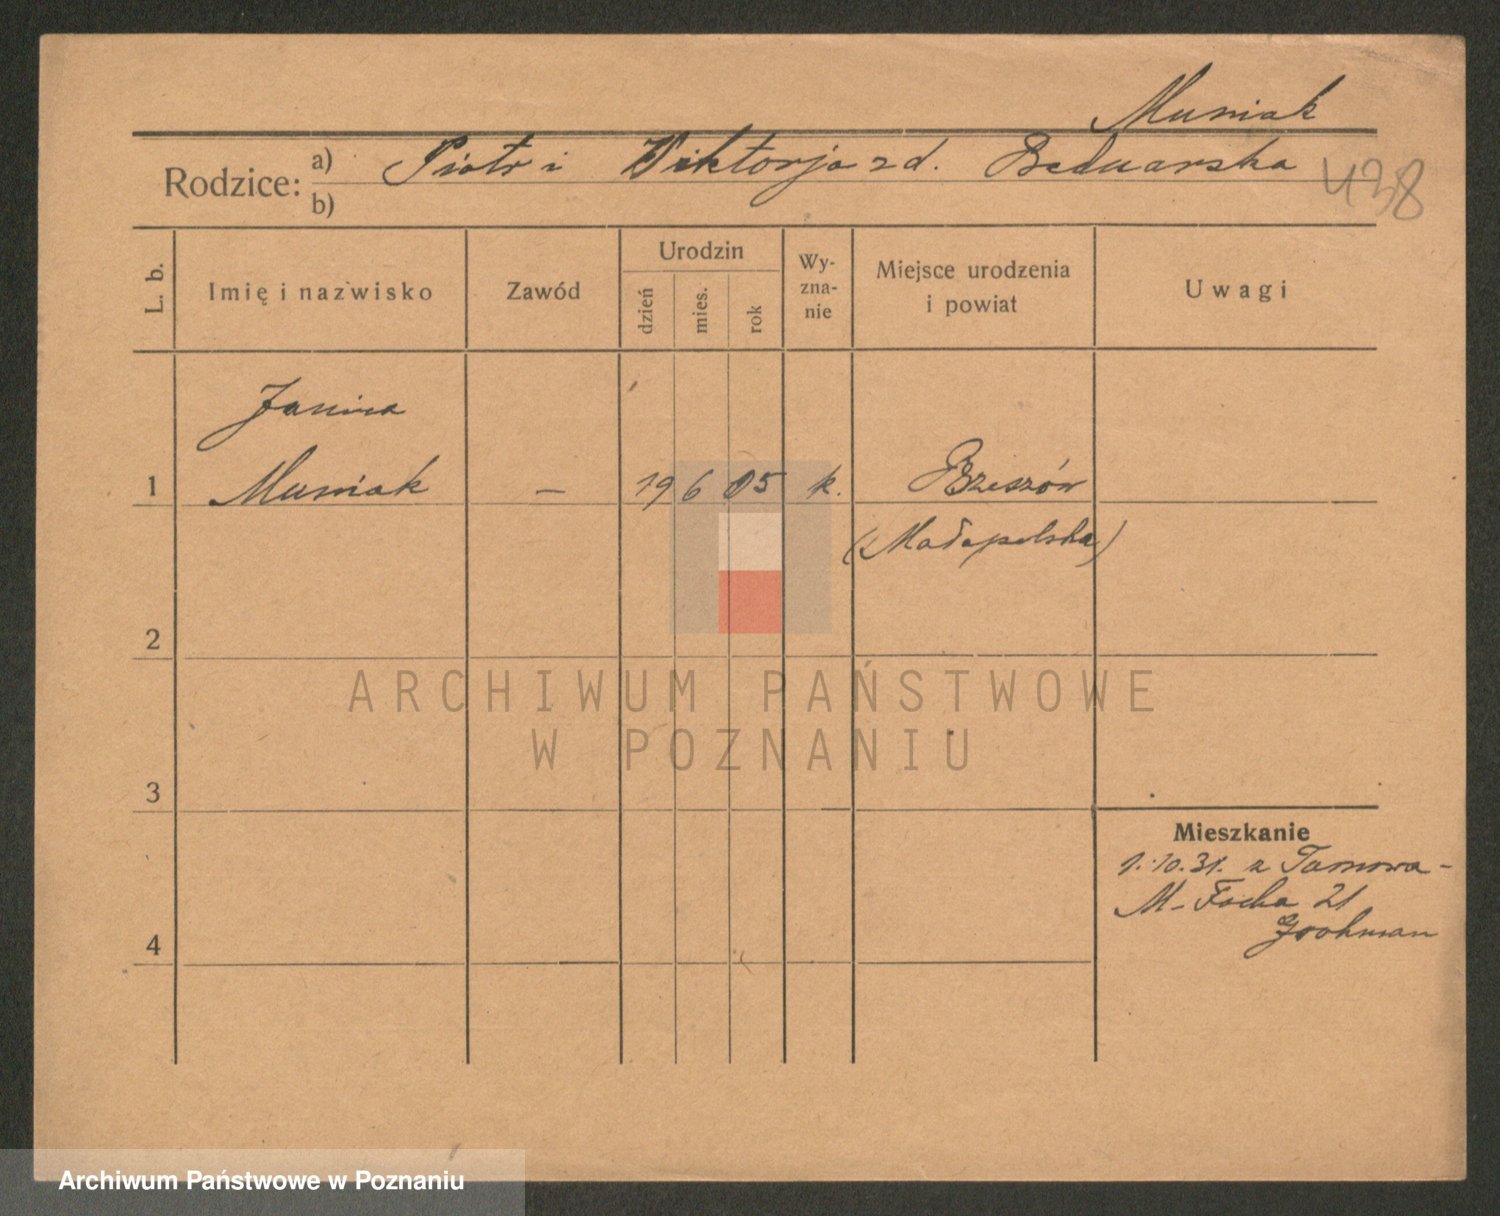 Muniak
Rodzice: a) Piotr i Wiktorja z d. Bednarska
b)
438
L. b.
Imię i nazwisko
Zawód
Urodzin
dzień
mies.
rok
Wy-
zna-
nie
Miejsce urodzenia
i powiat
Uwagi
Janina
1 Muniak – 19 6 05 k. Rzeszów
(Małopolska)
2
ARCHIWUM PAŃSTWOWE
W POZNANIU
3
Mieszkanie
1.10.31. z Tarnowa -
M- Focha 21
Grohman
4
Archiwum Państwowe w Poznaniu